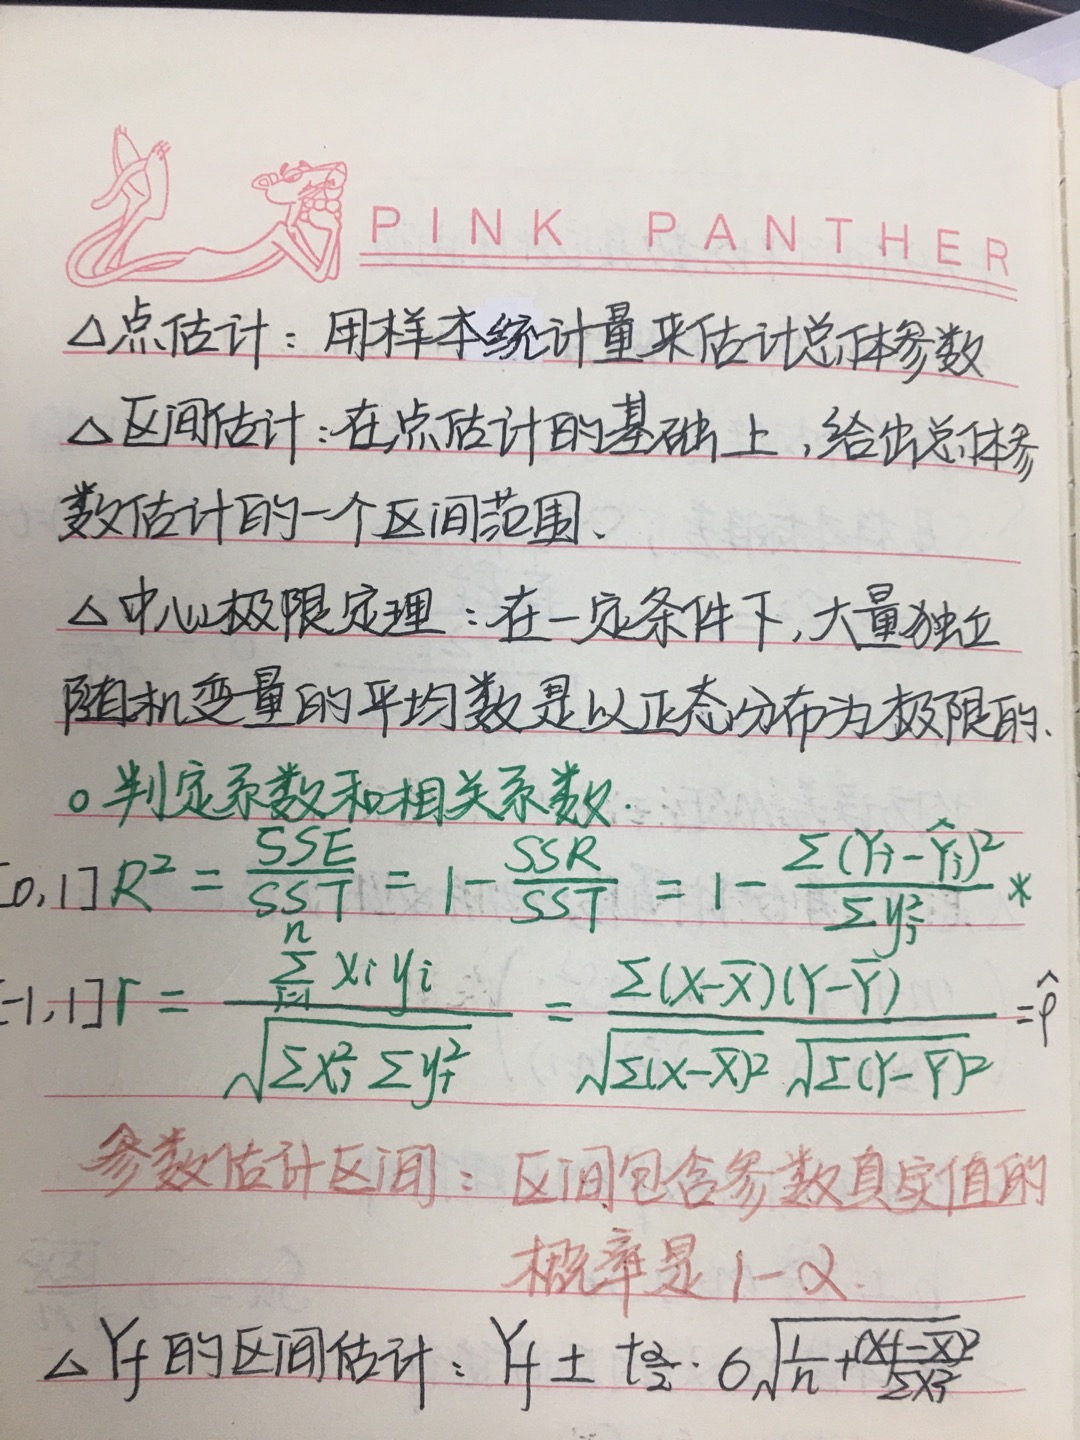 PINK PANTHER
△点估计：用样本统计量来估计总体参数
△区间估计：在点估计的基础上，给出总体参
数估计的一个区间范围.
△中心极限定理：在一定条件下，大量独立
随机变量的平均数是以正态分布为极限的.
○判定系数和相关系数.
[0,1] R² = SSE/SST = 1 - SSR/SST = 1 - Σ(Yⱼ-Ŷⱼ)²/Σyⱼ² *
[-1,1] r = Σⁿᵢ₌₁ xᵢyᵢ / √(Σxⱼ² Σyⱼ²) = Σ(X-X̄)(Y-Ȳ) / √Σ(X-X̄)² √Σ(Y-Ȳ)² = ρ̂
参数估计区间：区间包含参数真实值的
概率是1-α.
△Yf的区间估计：Yf ± t α/2 · 6√(1/n + (Xf-X̄)²/Σxⱼ²)